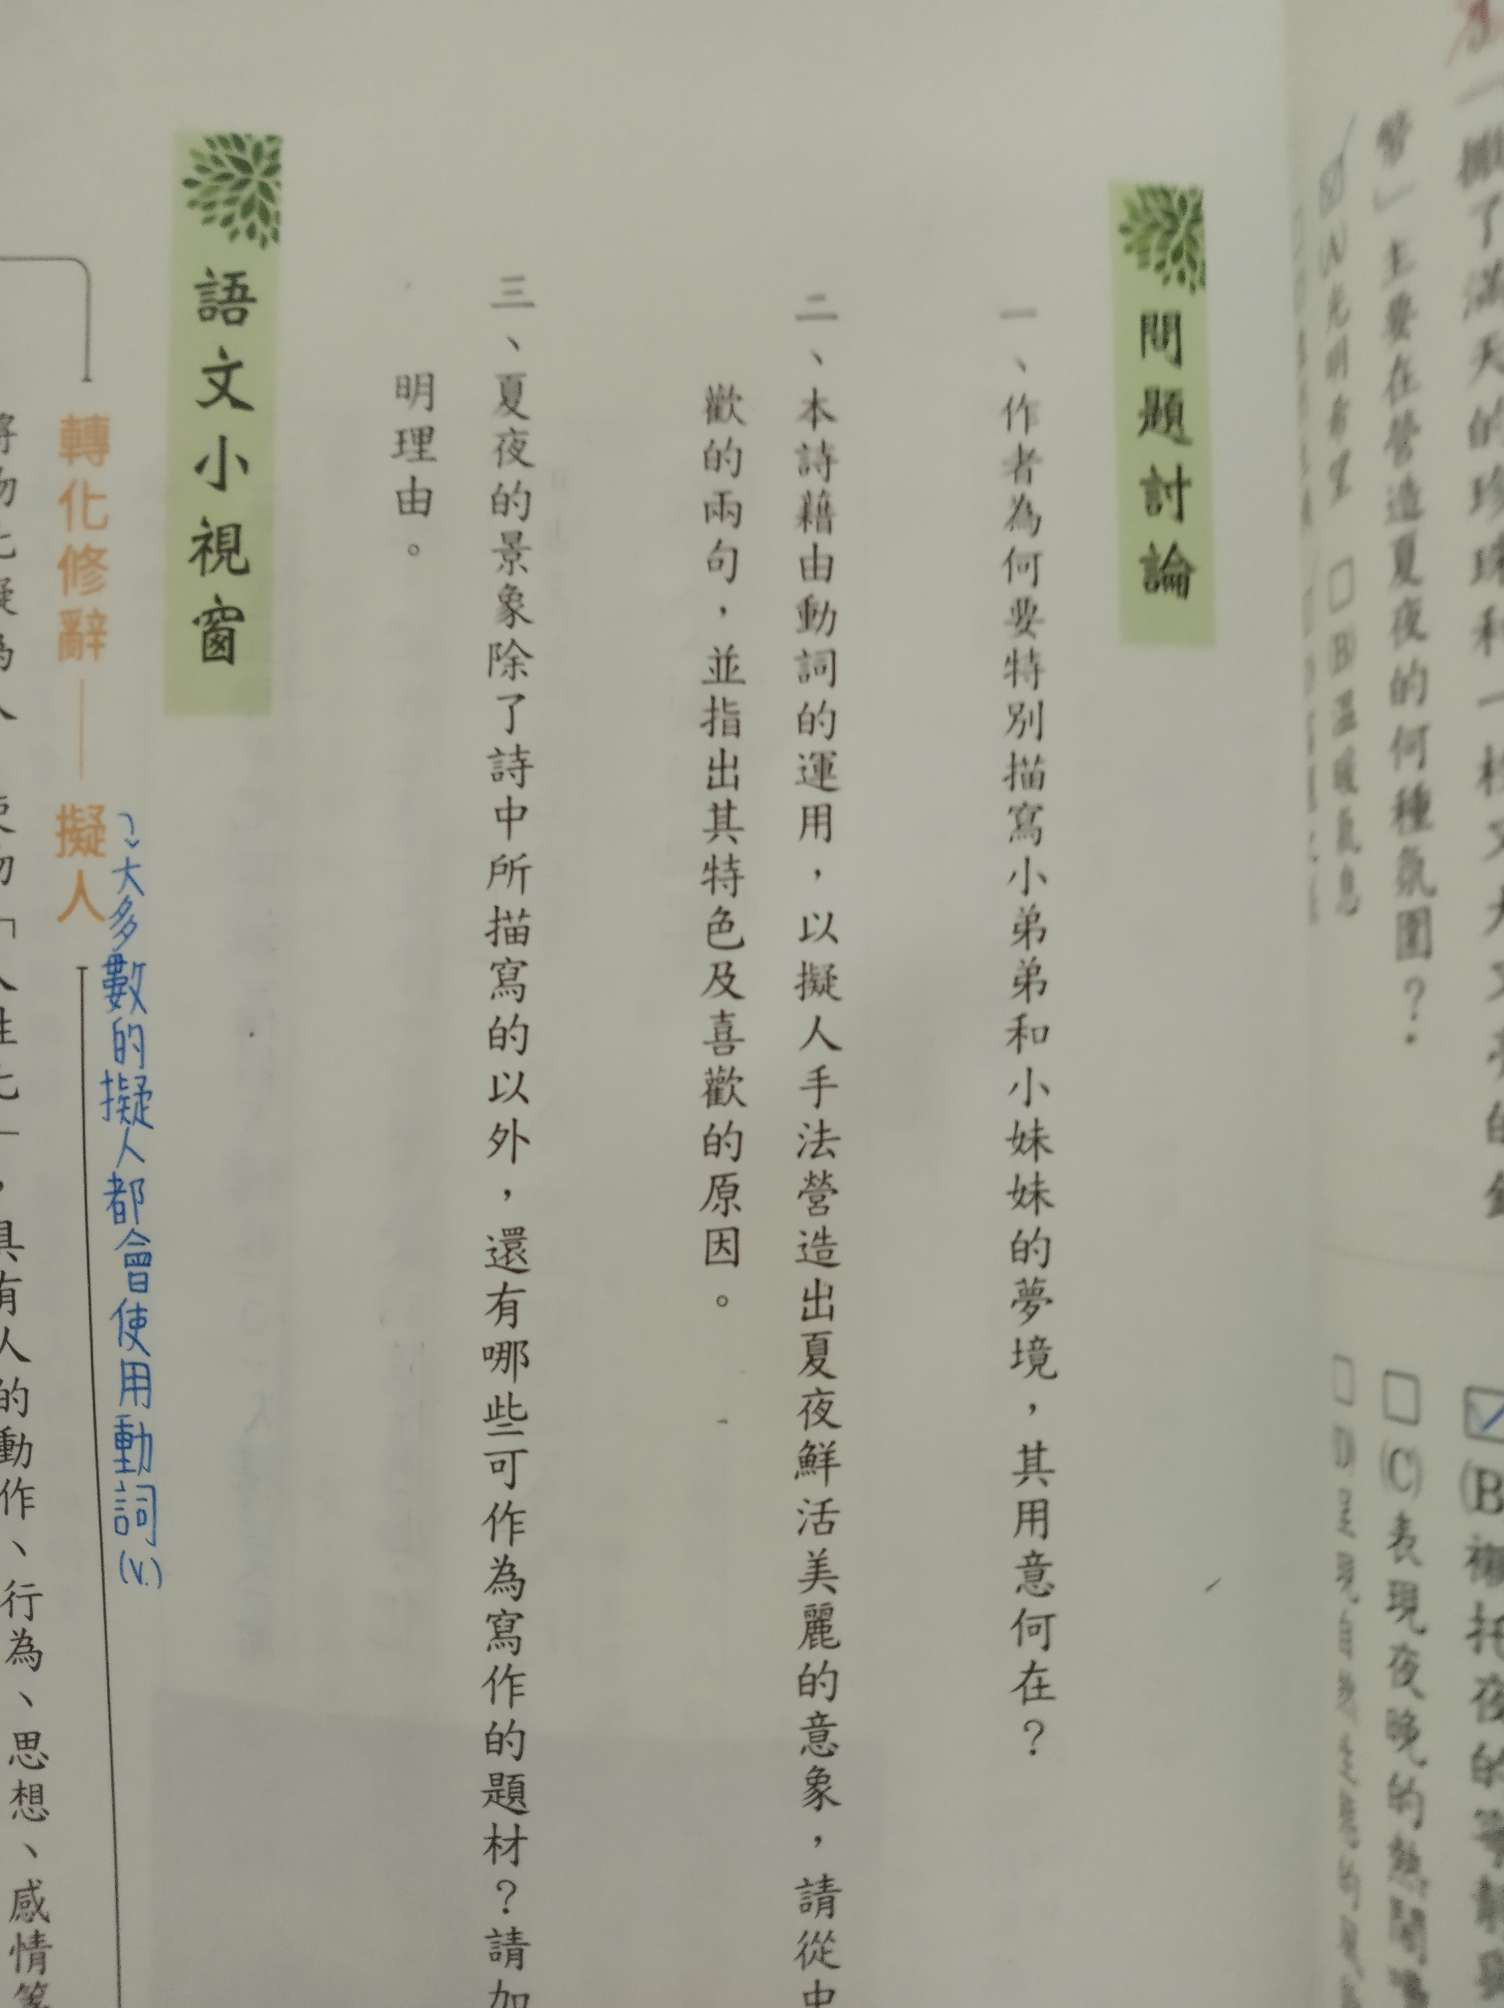 撒了滿天的珍珠和一枚又大又亮的
幣」主要在營造夏夜的何種氛圍？
(A)光明希望 □(B)溫暖氣息
☑(B)襯托夜的寧靜
□(C)表現夜晚的熱鬧
問題討論
一、作者為何要特別描寫小弟弟和小妹妹的夢境，其用意何在？
二、本詩藉由動詞的運用，以擬人手法營造出夏夜鮮活美麗的意象，請從中
歡的兩句，並指出其特色及喜歡的原因。
三、夏夜的景象除了詩中所描寫的以外，還有哪些可作為寫作的題材？請加
明理由。
語文小視窗
轉化修辭——擬人
大多數的擬人都會使用動詞(V.)
人性化」，具有人的動作、行為、思想、感情等